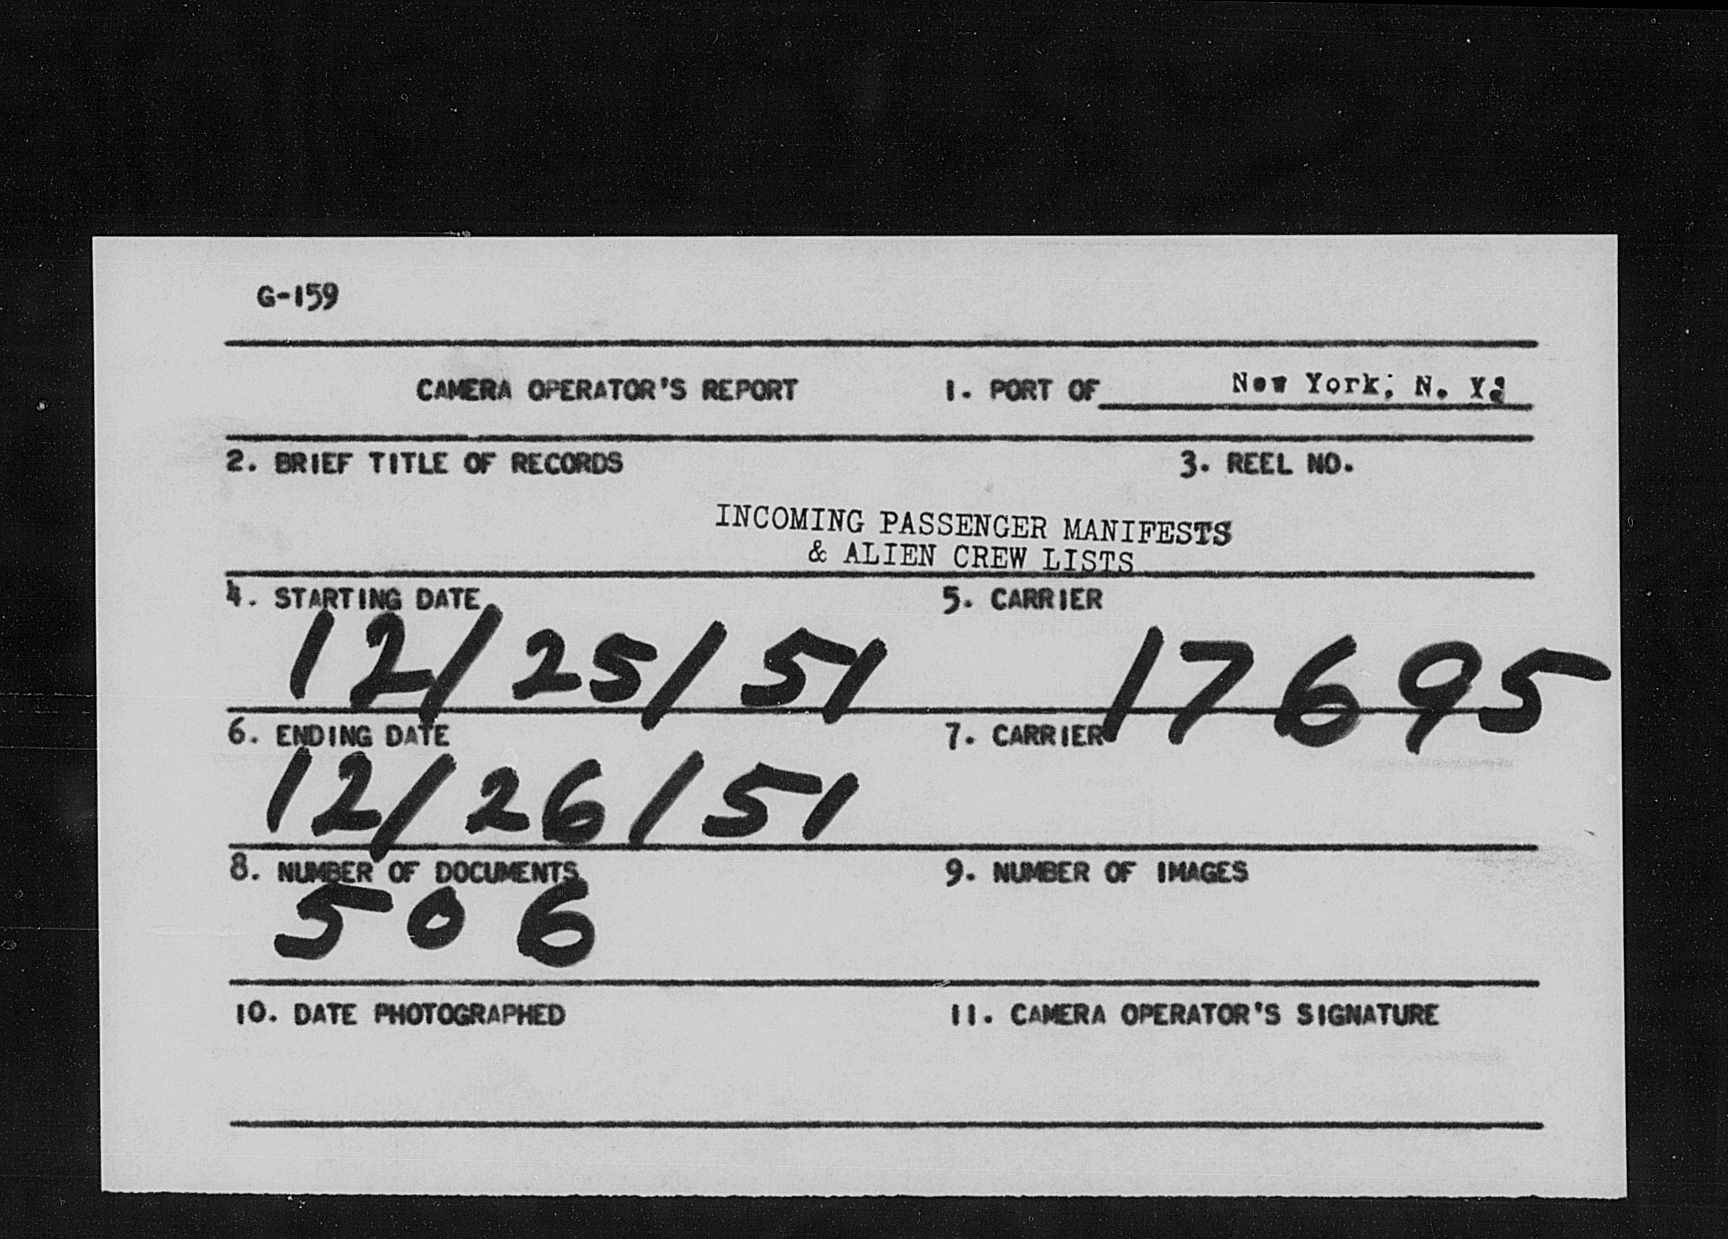 G-159
CAMERA OPERATOR'S REPORT 1. PORT OF New York, N. Y.
2. BRIEF TITLE OF RECORDS 3. REEL NO.
INCOMING PASSENGER MANIFESTS
& ALIEN CREW LISTS
4. STARTING DATE 5. CARRIER
12/25/51 17695
6. ENDING DATE 7. CARRIER
12/26/51
8. NUMBER OF DOCUMENTS 9. NUMBER OF IMAGES
506
10. DATE PHOTOGRAPHED 11. CAMERA OPERATOR'S SIGNATURE